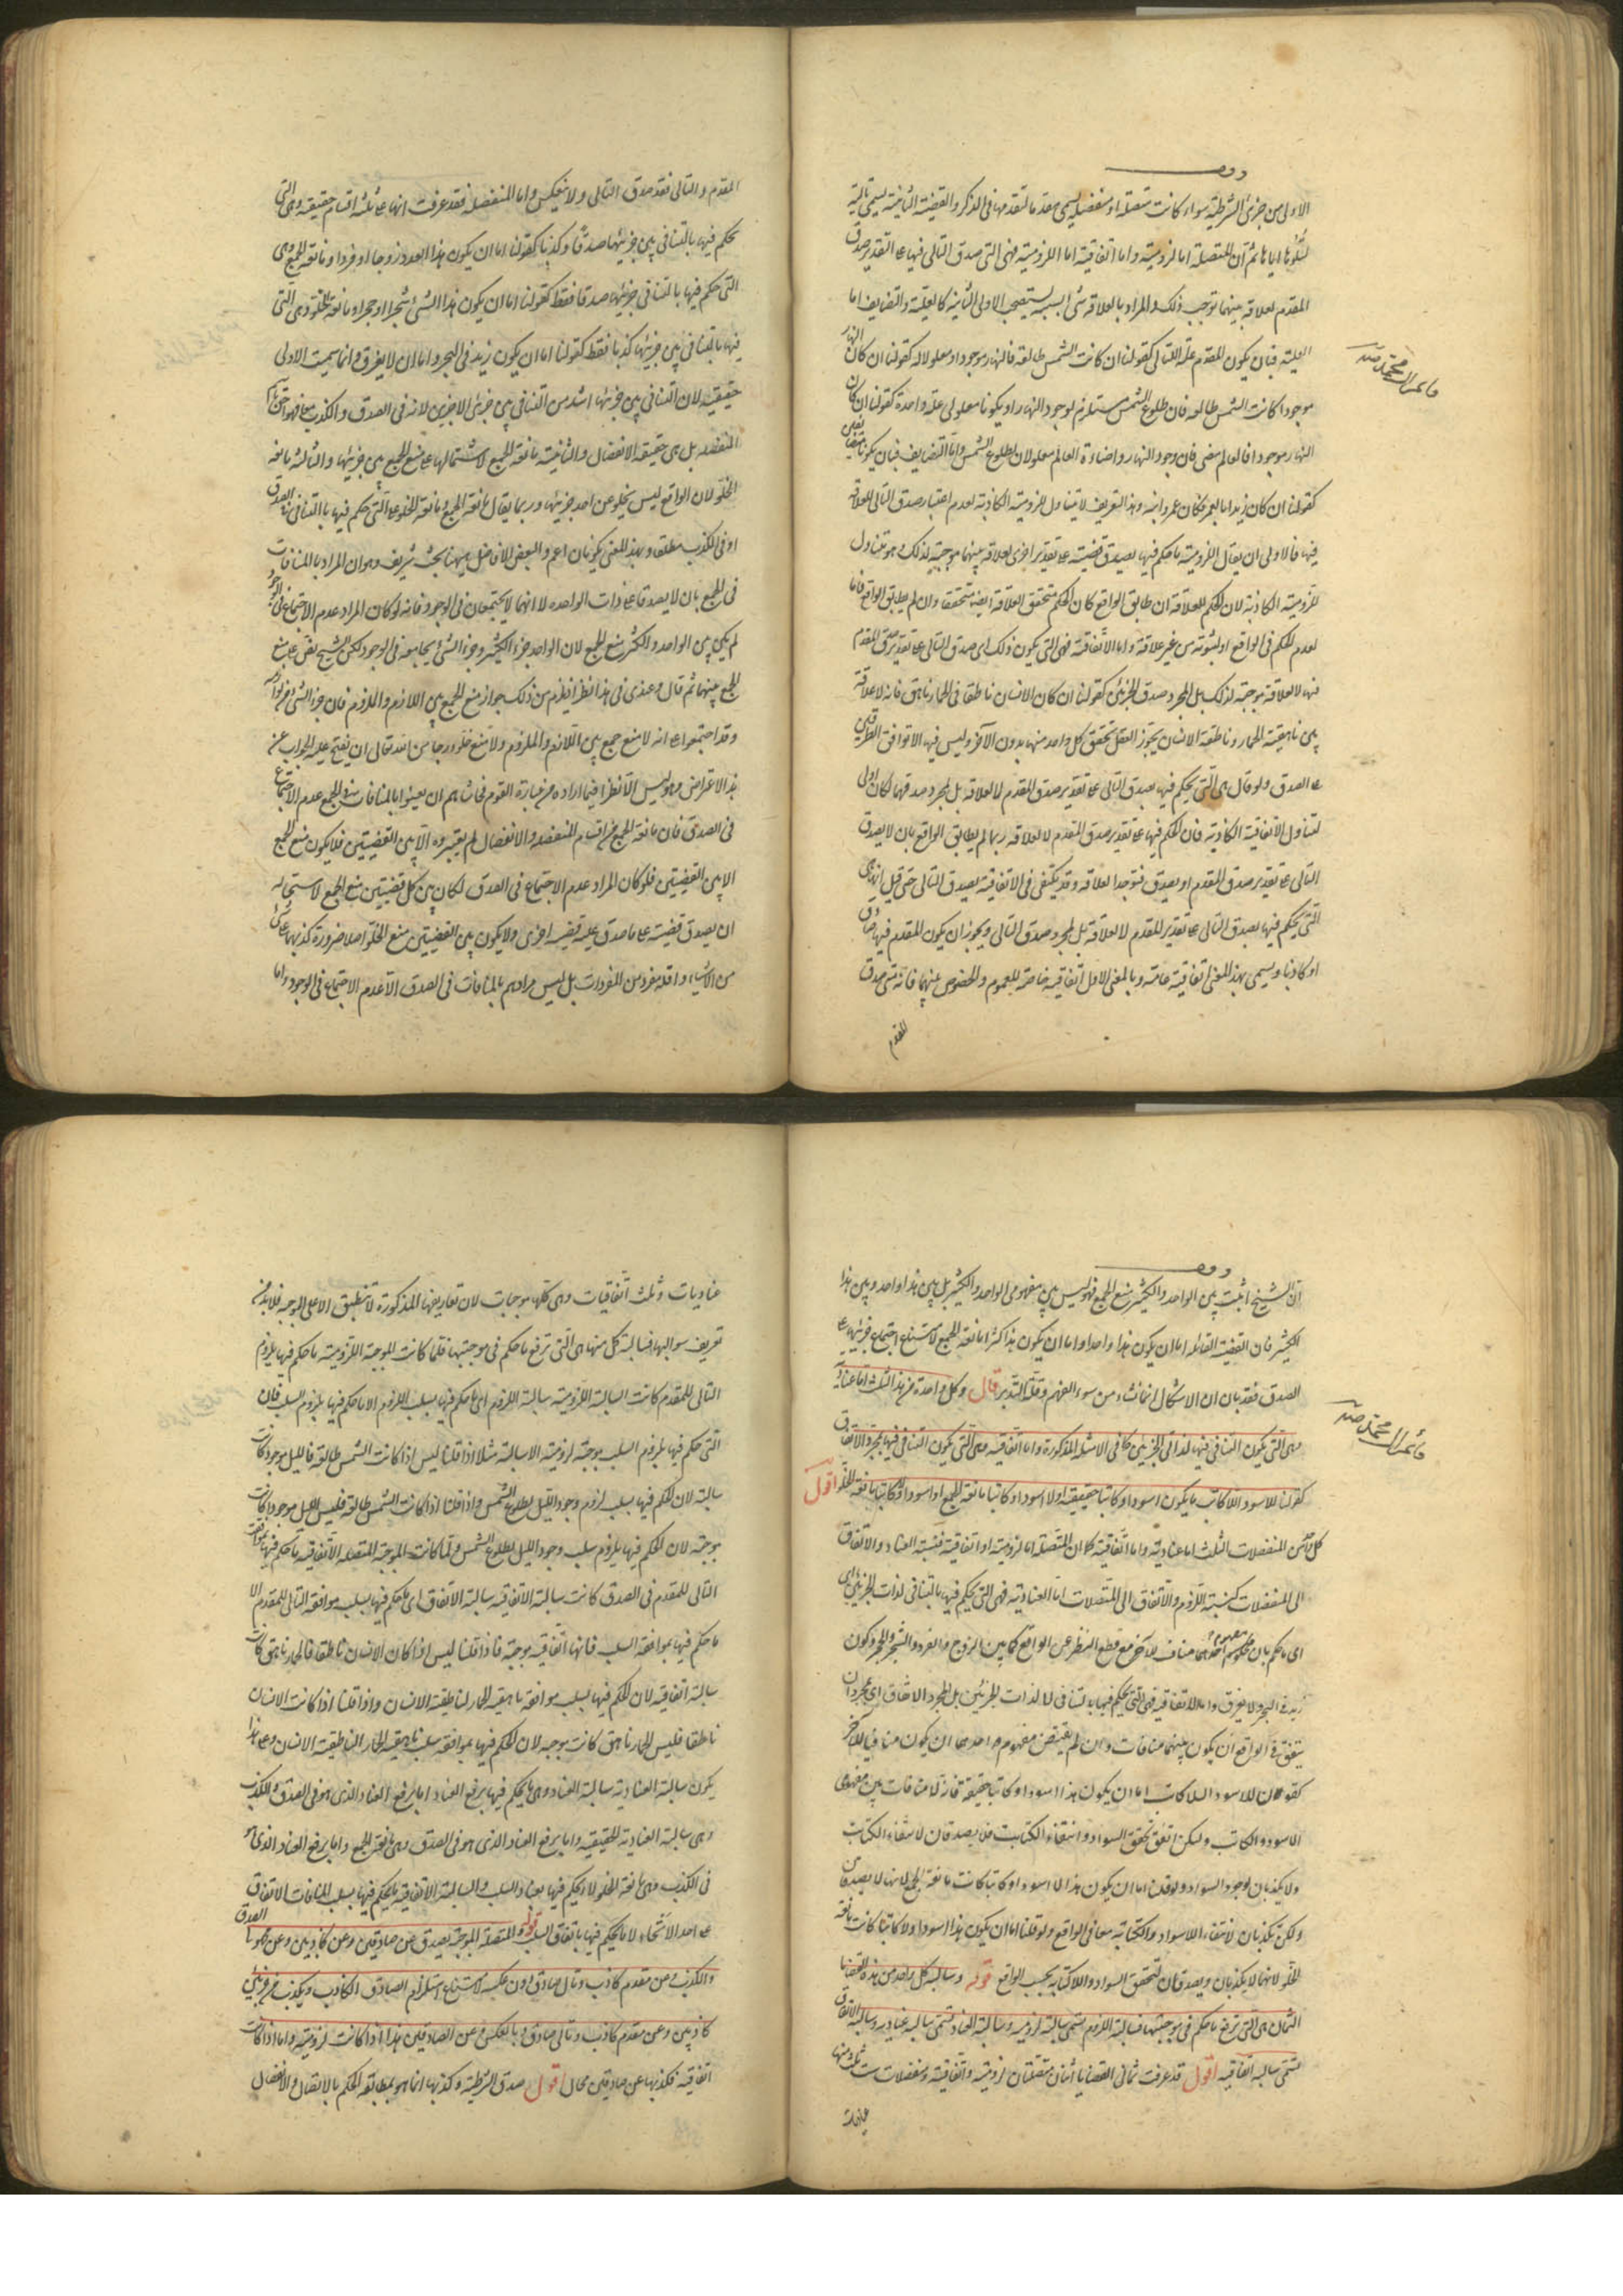 الاولى من جزئى الشرطية سواء كانت متصلة او منفصلة يسمى مقدما لتقدمها فى الذكر والقضية الثانية يسمى تاليا
لتلوها اياها ثم ان المتصلة اما لزومية واما اتفاقية اما اللزومية فهى التى صدق التالى فيها على تقدير صدق
المقدم لعلاقة بينهما توجب ذلك والمراد بالعلاقة شئ بسببه يستصحب الاولى الثانية كالعلية والتضايف اما
العلية فبان يكون المقدم علة للتالى كقولنا ان كانت الشمس طالعة فالنهار موجود او معلولا له كقولنا ان كان النهار
موجودا كانت الشمس طالعة فان طلوع الشمس مستلزم لوجود النهار او يكونا معلولى علة واحدة كقولنا ان كان
النهار موجودا فالعالم مضى فان وجود النهار واضاءة العالم معلولان لطلوع الشمس واما التضايف فبان يكونا متضايفين
كقولنا ان كان زيد ابا لعمرو كان عمرو ابنه وهذا التعريف لا يتناول اللزومية الكاذبة لعدم اعتبار صدق التالى لعلاقة
فيها فالاولى ان يقال اللزومية ما حكم فيها بصدق قضية على تقدير اخرى لعلاقة بينهما موجبة لذلك وهو يتناول
اللزومية الكاذبة لان الحكم للعلاقة ان طابق الواقع كان الحكم متحقق العلاقة ايضا متحققا وان لم يطابق الواقع فاما
لعدم الحكم فى الواقع او لثبوته من غير علاقة واما الاتفاقية فهى التى يكون ذلك اى صدق التالى على تقدير صدق المقدم
فيها لا لعلاقة موجبة لذلك بل لمجرد صدق الجزئين كقولنا ان كان الانسان ناطقا فالحمار ناهق فانه لا علاقة
بين ناهقية الحمار وناطقية الانسان يجوز العقل تحقق كل واحد منهما بدون الآخر وليس فيها الا توافق الطرفين
على الصدق ولو قال هى التى يحكم فيها بصدق التالى على تقدير صدق المقدم لا لعلاقة بل لمجرد صدقهما لكان اولى
لتناول الاتفاقية الكاذبة فان الحكم فيها على تقدير صدق المقدم لا لعلاقة ربما لم يطابق الواقع بان لا يصدق
التالى على تقدير صدق المقدم او يصدق فتوجد العلاقة وقد يكتفى فى الاتفاقية بصدق التالى حتى قيل انها هى
التى يحكم فيها بصدق التالى على تقدير المقدم لا لعلاقة بل لمجرد صدق التالى ويجوز ان يكون المقدم فيها صادقا
او كاذبا ويسمى بهذا المعنى اتفاقية عامة وبالمعنى الاول اتفاقية خاصة للعموم والخصوص بينهما فانه متى صدق
المقدم
المقدم والتالى فقد صدق التالى ولا ينعكس واما المنفصلة فقد عرفت انها على ثلثة اقسام حقيقية وهى التى
يحكم فيها بالتنافى بين جزئيها صدقا وكذبا كقولنا اما ان يكون هذا العدد زوجا او فردا ومانعة الجمع وهى
التى حكم فيها بالتنافى بين جزئيها صدقا فقط كقولنا اما ان يكون هذا الشئ شجرا او حجرا ومانعة الخلو وهى التى
فيها بالتنافى بين جزئيها كذبا فقط كقولنا اما ان يكون زيد فى البحر واما ان لا يغرق وانما سميت الاولى
حقيقية لان التنافى بين جزئيها اشد من التنافى بين جزئى الاخريين لانه فى الصدق والكذب معا فهو احق باسم
المنفصلة بل هى حقيقة الانفصال والثانية مانعة الجمع لاشتمالها على منع الجمع بين جزئيها والثالثة مانعة
الخلو لان الواقع ليس يخلو عن احد جزئيها وربما يقال مانعة الجمع ومانعة الخلو على التى حكم فيها بالتنافى فى الصدق
او فى الكذب مطلقا وبهذا المعنى يكونان اعم ولبعض الافاضل ههنا بحث شريف وهو ان المراد بالمنافات
فى الجمع بان لا يصدقا على ذات الواحدة لا انهما لا يجتمعان فى الوجود فانه لو كان المراد عدم الاجتماع فى الوجود
لم يكن بين الواحد والكثير منع الجمع لان الواحد جزء الكثير وجزء الشئ يجامعه فى الوجود لكن الشيخ نص على منع
الجمع بينهما ثم قال وعندى فى هذا نظر اذ يلزم من ذلك جواز منع الجمع بين اللازم والملزوم فان جزء الشئ من لوازمه
وقد اجتمعوا على انه لا منع جمع بين اللازم والملزوم ولا منع خلو ورجا من الله تعالى ان يفتح عليه الجواب عن
هذا الاعتراض وهو ليس الا نظرا فيما اراده من عبارة القوم فحاشاهم ان يعنوا بالمنافات فى الجمع عدم الاجتماع
فى الصدق فان مانعة الجمع من اقسام المنفصلة والانفصال لم يعتبروه الا بين القضيتين فلا يكون منع الجمع
الا بين القضيتين فلو كان المراد عدم الاجتماع فى الصدق لكان بين كل قضيتين منع الجمع لاستحالة
ان يصدق قضية على ما صدق عليه قضية اخرى ولا يكون بين القضيتين منع الخلو اصلا ضرورة كذبهما على شئ
من الاشياء واقله مفرد من المفردات بل ليس مرادهم بالمنافات فى الصدق الا عدم الاجتماع فى الوجود واما
ان الشيخ اثبت بين الواحد والكثير منع الجمع فهو ليس بين مفهومى الواحد والكثير بل بين هذا واحد وبين هذا
الكثير فان القضية القائلة اما ان يكون هذا واحدا واما ان يكون هذا كثيرا مانعة الجمع لامتناع اجتماع جزئيها على
الصدق فقد بان ان الاشكال انما نشاء من سوء الفهم وقلة التدبر قال وكل واحدة من هذه الثلث اما عنادية
وهى التى يكون التنافى فيها لذاتى الجزئين كما فى الامثلة المذكورة واما اتفاقية وهى التى يكون التنافى فيها بمجرد الاتفاق
كقولنا للاسود اللاكاتب اما ان يكون اسود او كاتبا حقيقية او لا اسود او كاتبا مانعة الجمع او اسود او لا كاتبا مانعة الخلو اقول
كل من المنفصلات الثلث اما عنادية واما اتفاقية كما ان المتصلة اما لزومية او اتفاقية فنسبة العناد والاتفاق
الى المنفصلات كنسبة اللزوم والاتفاق الى المتصلات اما العنادية فهى التى يحكم فيها بالتنافى لذات الجزئين اى
اى ما حكم بان مفهوم احدهما مناف للآخر مع قطع النظر عن الواقع كما بين الزوج والفرد والشجر والحجر وكون
زيد فى البحر ولا يغرق واما الاتفاقية فهى التى يحكم فيها بالتنافى لا لذات الجزئين بل لمجرد الاتفاق اى بمجرد ان
يتفق فى الواقع ان يكون بينهما منافات وان لم يقتض مفهوم احدهما ان يكون منافيا للآخر
كقولنا للاسود اللاكاتب اما ان يكون هذا اسود او كاتبا حقيقية فانه لا منافات بين مفهومى
الاسود والكاتب ولكن اتفق تحقق السواد وانتفاء الكتابة فلا يصدقان لانتفاء الكتابة
ولا يكذبان لوجود السواد ولو قلنا اما ان يكون هذا لا اسود او كاتبا كانت مانعة الجمع لانهما لا يصدقان
ولكن يكذبان لانتفاء اللاسواد والكتابة معا فى الواقع ولو قلنا اما ان يكون هذا اسود او لا كاتبا كانت مانعة
الخلو لانهما لا يكذبان ويصدقان لتحقق السواد واللاكتابة بحسب الواقع قوله وسالبة كل واحد من هذه القضايا
الثمان هى التى ترفع ما حكم فى موجبتها فسالبة اللزوم تسمى سالبة لزومية وسالبة العناد تسمى سالبة عنادية وسالبة الاتفاق
تسمى سالبة اتفاقية اقول قد عرفت ثمانى القضايا اثنان متصلتان لزومية واتفاقية ومنفصلات ست ثلث منها
عناديات
عناديات وثلث اتفاقيات وهى كلها موجبات لان تعاريفها المذكورة لا تنطبق الا على الموجبة فلابد من
تعريف سوالبها فسالبة كل منها هى التى ترفع ما حكم فى موجبتها فلما كانت الموجبة اللزومية ما حكم فيها بلزوم
التالى للمقدم كانت السالبة اللزومية سالبة اللزوم اى ما حكم فيها بسلب اللزوم الا ما حكم فيها بلزوم السلب فان
التى حكم فيها بلزوم السلب موجبة لزومية لا سالبة مثلا اذا قلنا ليس اذا كانت الشمس طالعة فالليل موجود كانت
سالبة لان الحكم فيها بسلب لزوم وجود الليل لطلوع الشمس واذا قلنا اذا كانت الشمس طالعة فليس الليل موجودا كانت
موجبة لان الحكم فيها بلزوم سلب وجود الليل لطلوع الشمس ولما كانت الموجبة المتصلة الاتفاقية ما حكم فيها بموافقة
التالى للمقدم فى الصدق كانت سالبة الاتفاقية سالبة الاتفاق اى ما حكم فيها بسلب موافقة التالى للمقدم لا
ما حكم فيها بموافقة السلب فانها اتفاقية موجبة فاذا قلنا ليس اذا كان الانسان ناطقا فالحمار ناهق كانت
سالبة اتفاقية لان الحكم فيها بسلب موافقة ناهقية الحمار لناطقية الانسان واذا قلنا اذا كانت الانسان
ناطقا فليس الحمار ناهق كانت موجبة لان الحكم فيها بموافقة سلب ناهقية الحمار لناطقية الانسان وعلى هذا
يكون سالبة العنادية سالبة العناد وهى ما يحكم فيها برفع العناد اما برفع العناد الذى هو فى الصدق والكذب
وهى سالبة العنادية الحقيقية واما برفع العناد الذى هو فى الصدق وهى مانعة الجمع واما برفع العناد الذى هو
فى الكذب وهى مانعة الخلو لا ما يحكم فيها بعناد السلب والسالبة الاتفاقية ما يحكم فيها بسلب المنافات الاتفاق
على احد الانحاء لا ما يحكم فيها باتفاق السلب قوله والمتصلة الموجبة يصدق عن صادقين وعن كاذبين وعن مجهولى الصدق
والكذب وعن مقدم كاذب وتالى صادق دون عكسه لامتناع استلزام الصادق الكاذب ويكذب عن جزئين
كاذبين وعن مقدم كاذب وتالى صادق وبالعكس وعن الصادقين هذا اذا كانت لزومية واما اذا كانت
اتفاقية فكذبها عن صادقين محال اقول صدق الشرطية وكذبها انما هو بمطابقة الحكم بالاتصال والانفصال